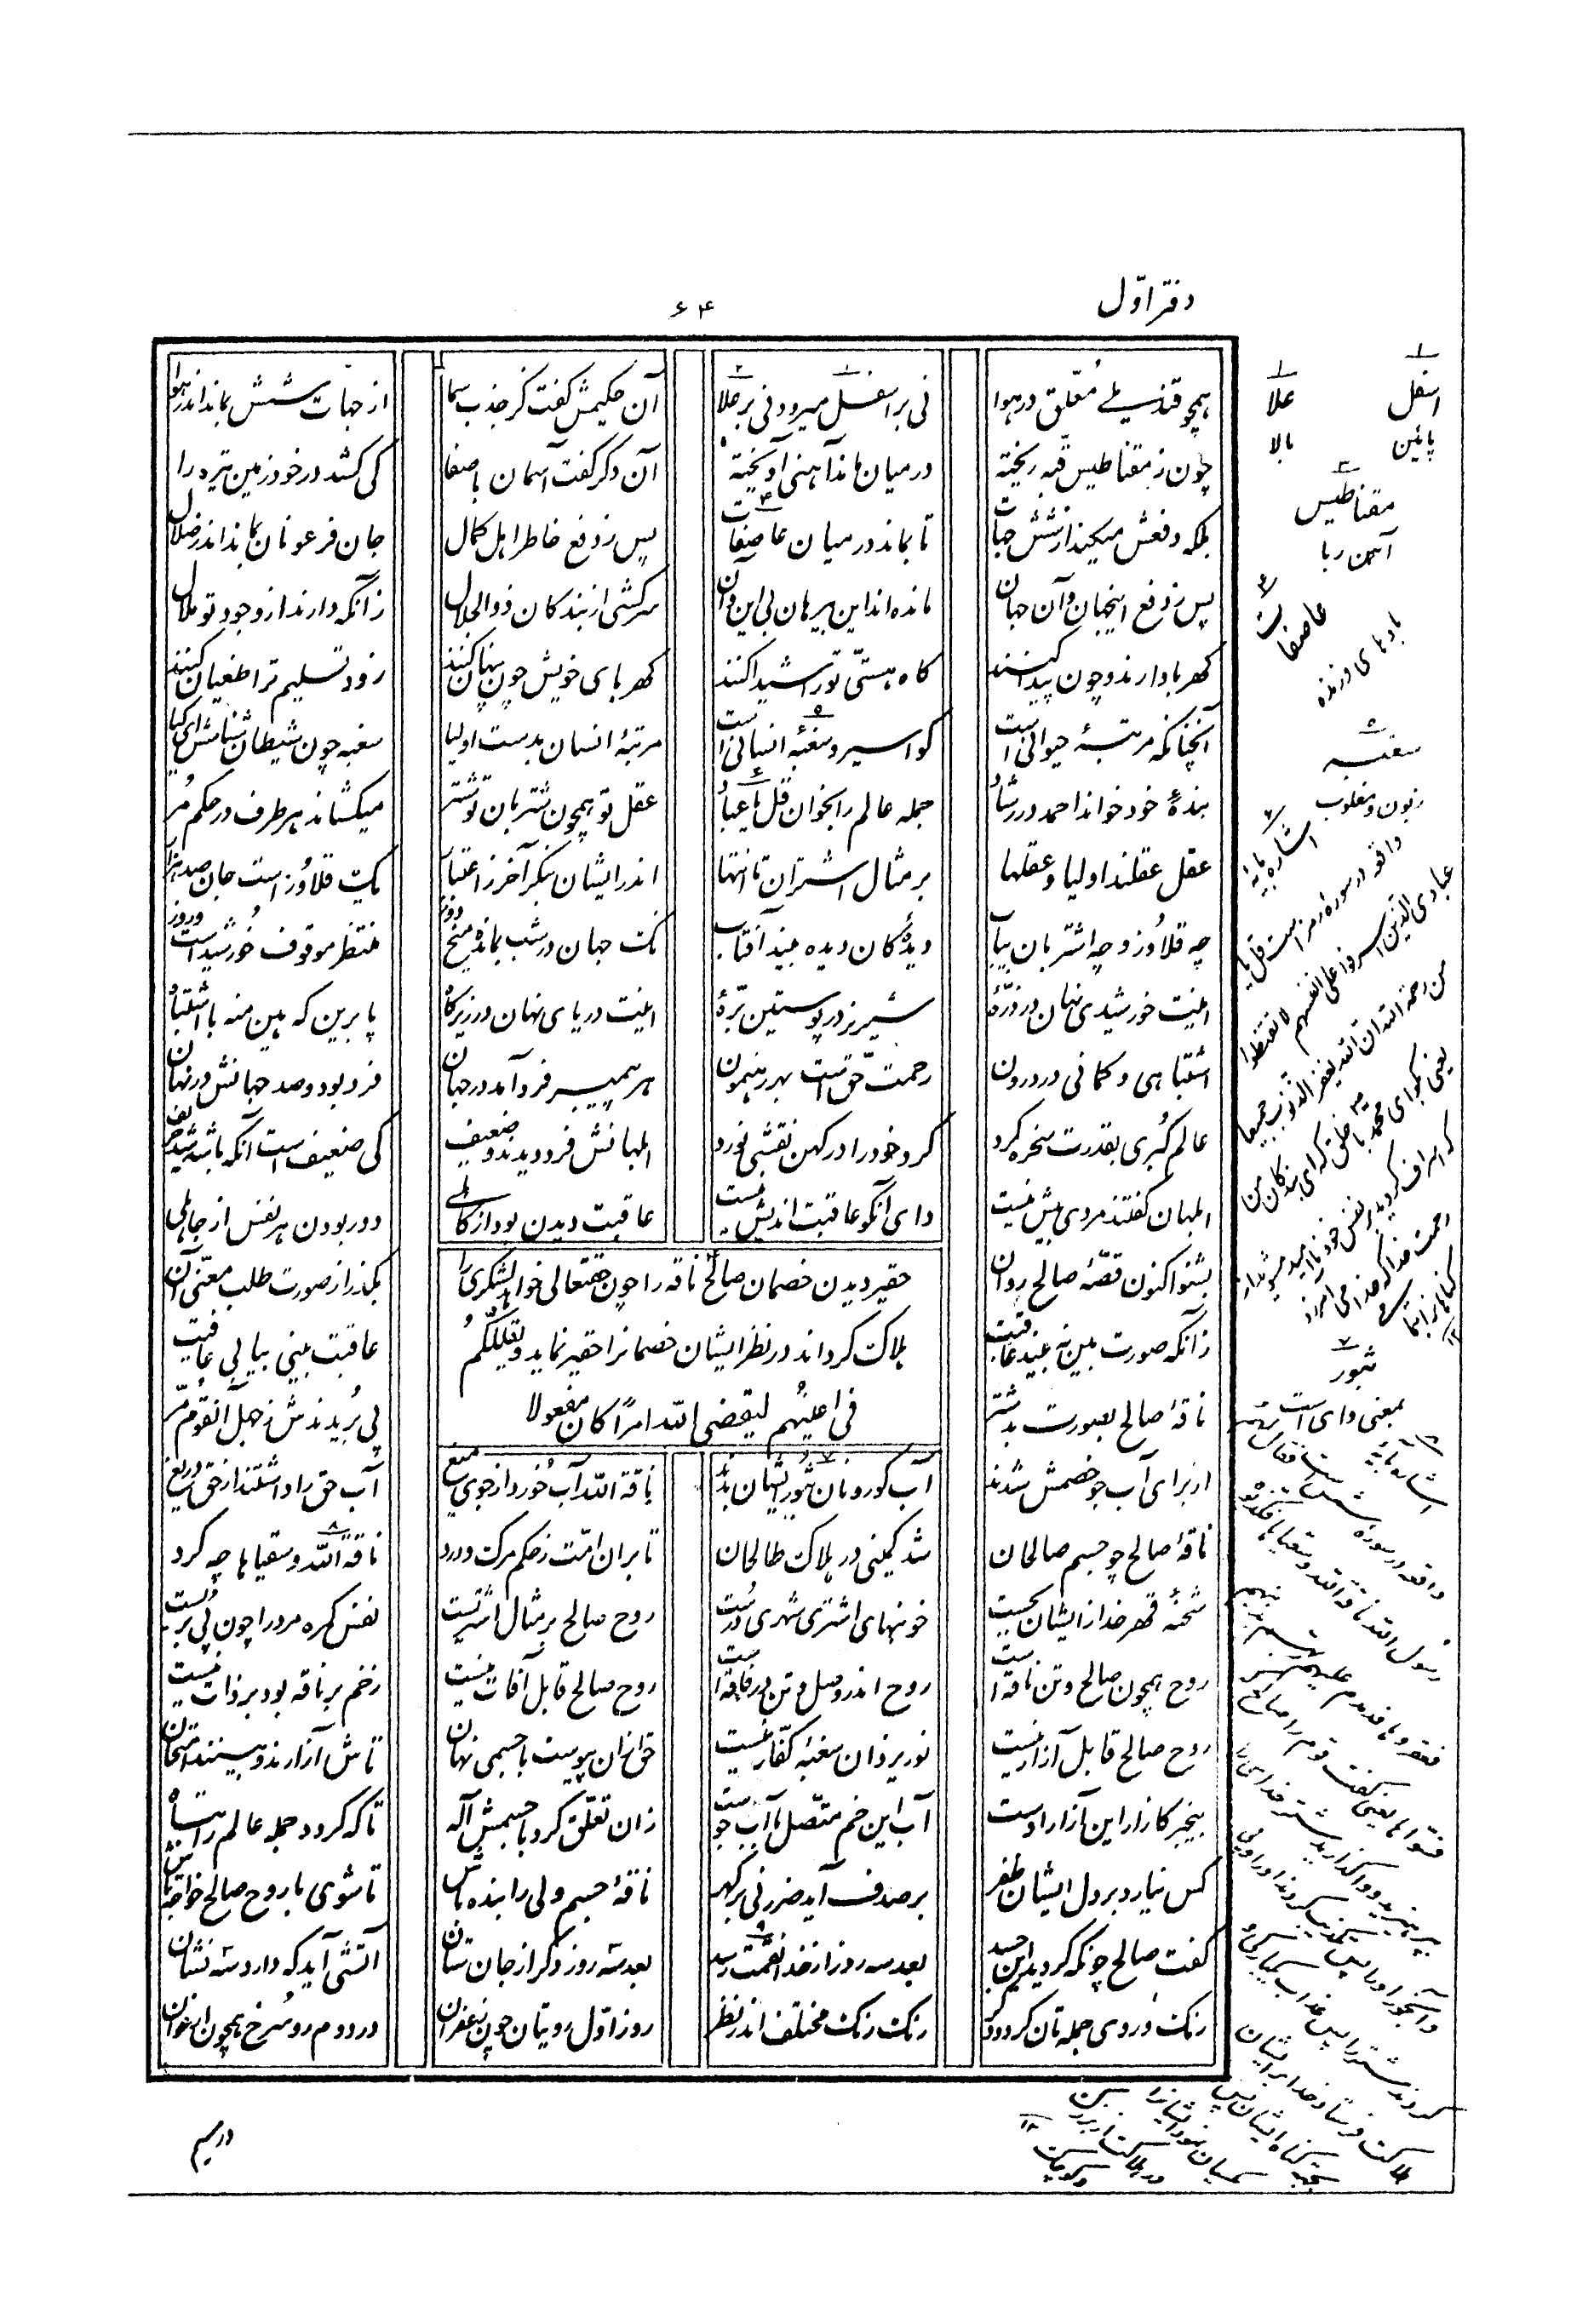 دفتر اوّل
۶۴
همچو قندیلے مُعلّق در هوا نی بر اسفل میرود نی بر علا آن حکیمش گفت کز جذب سما از جهات شش بماند اندر هوا
چون ز مقناطیس قبه ریخته در میان ماند آهنی آویخته آن دکر گفت آسمان باصفا کی کشد در خود زمین تیره را
بلکه دفعش میکند از شش جهات تا بماند در میان عاصفات پس ز دفع خاطر اهل کمال جان فرعونان بماند اندر ضلال
پس ز دفع اینجهان و آن جهان مانده‌اند این بیرهان بی این و آن سرکشی از بندکان ذوالجلال زآنکه دارند از وجود تو ملال
کهربا دارند و چون پیدا کنند کاه هستّی تو را شیدا کنند کهربای خویش چون پنهان کنند زود تسلیم ترا طغیان کنند
آنچنانکه مرتبهٔ حیوانی است کو اسیر و سغبهٔ انسانی است مرتبهٔ انسان بدست اولیا سغبه چون حیوان شناسش ای کیا
بندهٔ خود خواند احمد در رشاد جمله عالم را بخوان قل یا عباد عقل تو همچون شتربان تو شتر میکشاند هر طرف در حکم مُر
عقل عقلند اولیا و عقلها بر مثال اشتران تا انتها اندر ایشان بنکر آخر ز اعتبار یک قلاوز است جان صد هزار
چه قلاوُز و چه اشتربان بیاب دیدهٔ کان دیده بیند آفتاب نک جهان در شب بمانده میخ دوز منتظر موقوف خورشید است و روز
اینت خورشیدی نهان در ذرّهٔ شیر نر در پوستین برّهٔ اینت دریای نهان در زیر کاه پا برین که هین منه با اشتباه
اشتباهی و کمانی در درون رحمت حّق است بهر رهنمون هر پیمبر فرد آمد در جهان فرد بود و صد جهانش در نهان
عالم کُبری بقدرت سخره کرد کرد خود را در کهین نقشی نورد ابلهانش فرد دیدند و ضعیف کی ضعیف است آنکه با شه شد حریف
ابلهان کفتند مردی بیش نیست وای آنکو عاقبت اندیش نیست عاقبت دیدن بود از کاملی دور بودن هر نفس از جاهلی
بشنو اکنون قصّهٔ صالح روان بکذر از صورت طلب معنّی آن
حقیر دیدن خصمان صالح ناقه را چون حقتعالی خواهد لشکری را
زانکه صورت بین نه بیند عاقبت عاقبت بینی بیابی عافیت
هلاک کرداند در نظر ایشان خصمانرا حقیر نماید و یقلّلکُم
ناقهٔ صالح بصورت بد شتر پی بُریدندش ز جهل آنقوم مّر
فی اعینُهم لیقضی الله امرًا کان مفعولا
از برای آب جو خصمش شدند آب کور و نان ثبور ایشان بدند ناقة الله آب خورد از جوی میغ آب حق را داشتند از حق دریغ
ناقهٔ صالح چو جسم صالحان شد کمینی در هلاک طالحان تا بران امّت ز حکم مرک و درد ناقة الله و سقیاها چه کرد
شحنهٔ قهر خدا زایشان بجست خونبهای اشتری شهری درست روح صالح بر مثال اشتریست نفس کمره مرو را چون پی بُریست
روح همچون صالح و تن ناقه است روح اندر وصل و تن در فاقه است روح صالح قابل آفات نیست زخم بر ناقه بود بر ذات نیست
روح صالح قابل آزار نیست نور یزدان سغبهٔ کفّار نیست حق ازان پیوست با جسمی نهان تاش آزارند و بینند امتحان
بیخبر کازار این آزار اوست آب این خم متّصل با آب جوست زان تعلّق کرد با جسمش آله تا که کردد جمله عالم را پناه
کس نیابد بر دل ایشان ظفر بر صدف آید ضرر نی بر کهر ناقهٔ جسم ولی را بنده باش تا شوی با روح صالح خواجه تاش
کفت صالح چونکه کردید این حسد بعد سه روز از خدا نقمت رسد بعد سه روز دکر از جان ستان آتشی آید که دارد سه نشان
رنک و روی جمله‌تان کردد دکر رنک رنک مختلف اندر نظر روز اوّل رویتان چون زعفران در دوم رو سُرخ همچون ارغوان
در سیم
۱ اسفل
پائین
۲ علا
بالا
۳ مقناطیس
آهن ربا
۴ عاصفات
بادهای وزنده
۵ سغبه
زبون و مغلوب
۶ اشاره بآیهٔ
واقعه در سورهٔ زمر است قل یا
عبادی الذین اسرفوا علی انفسهم لا تقنطوا
من رحمة الله ان الله یغفر الذنوب جمیعا
یعنی بکو ای محمد با خلق که ای بندکان من
که اسراف کردید بر نفس خود ناامید مشوید از
رحمت خدا که خدا می‌آمرزد
۷ ثبور
بمعنی وای است
۸ اشاره بآیهٔ
واقعه در سورهٔ
رسول الله ناقة الله و سقیاها فکذبوه